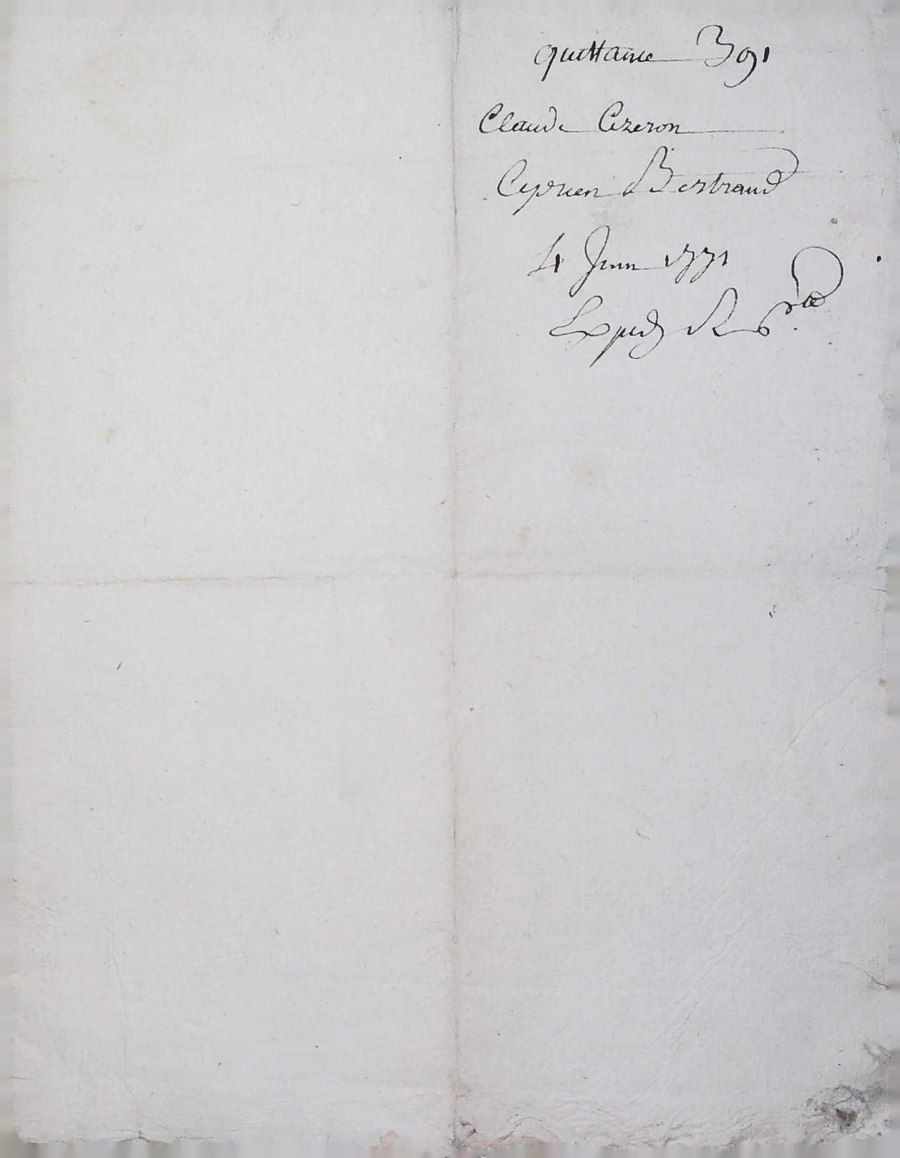 quittance 391
Claude Cezeron
Ciprien Bertrand
4 Juin 1771
Exped